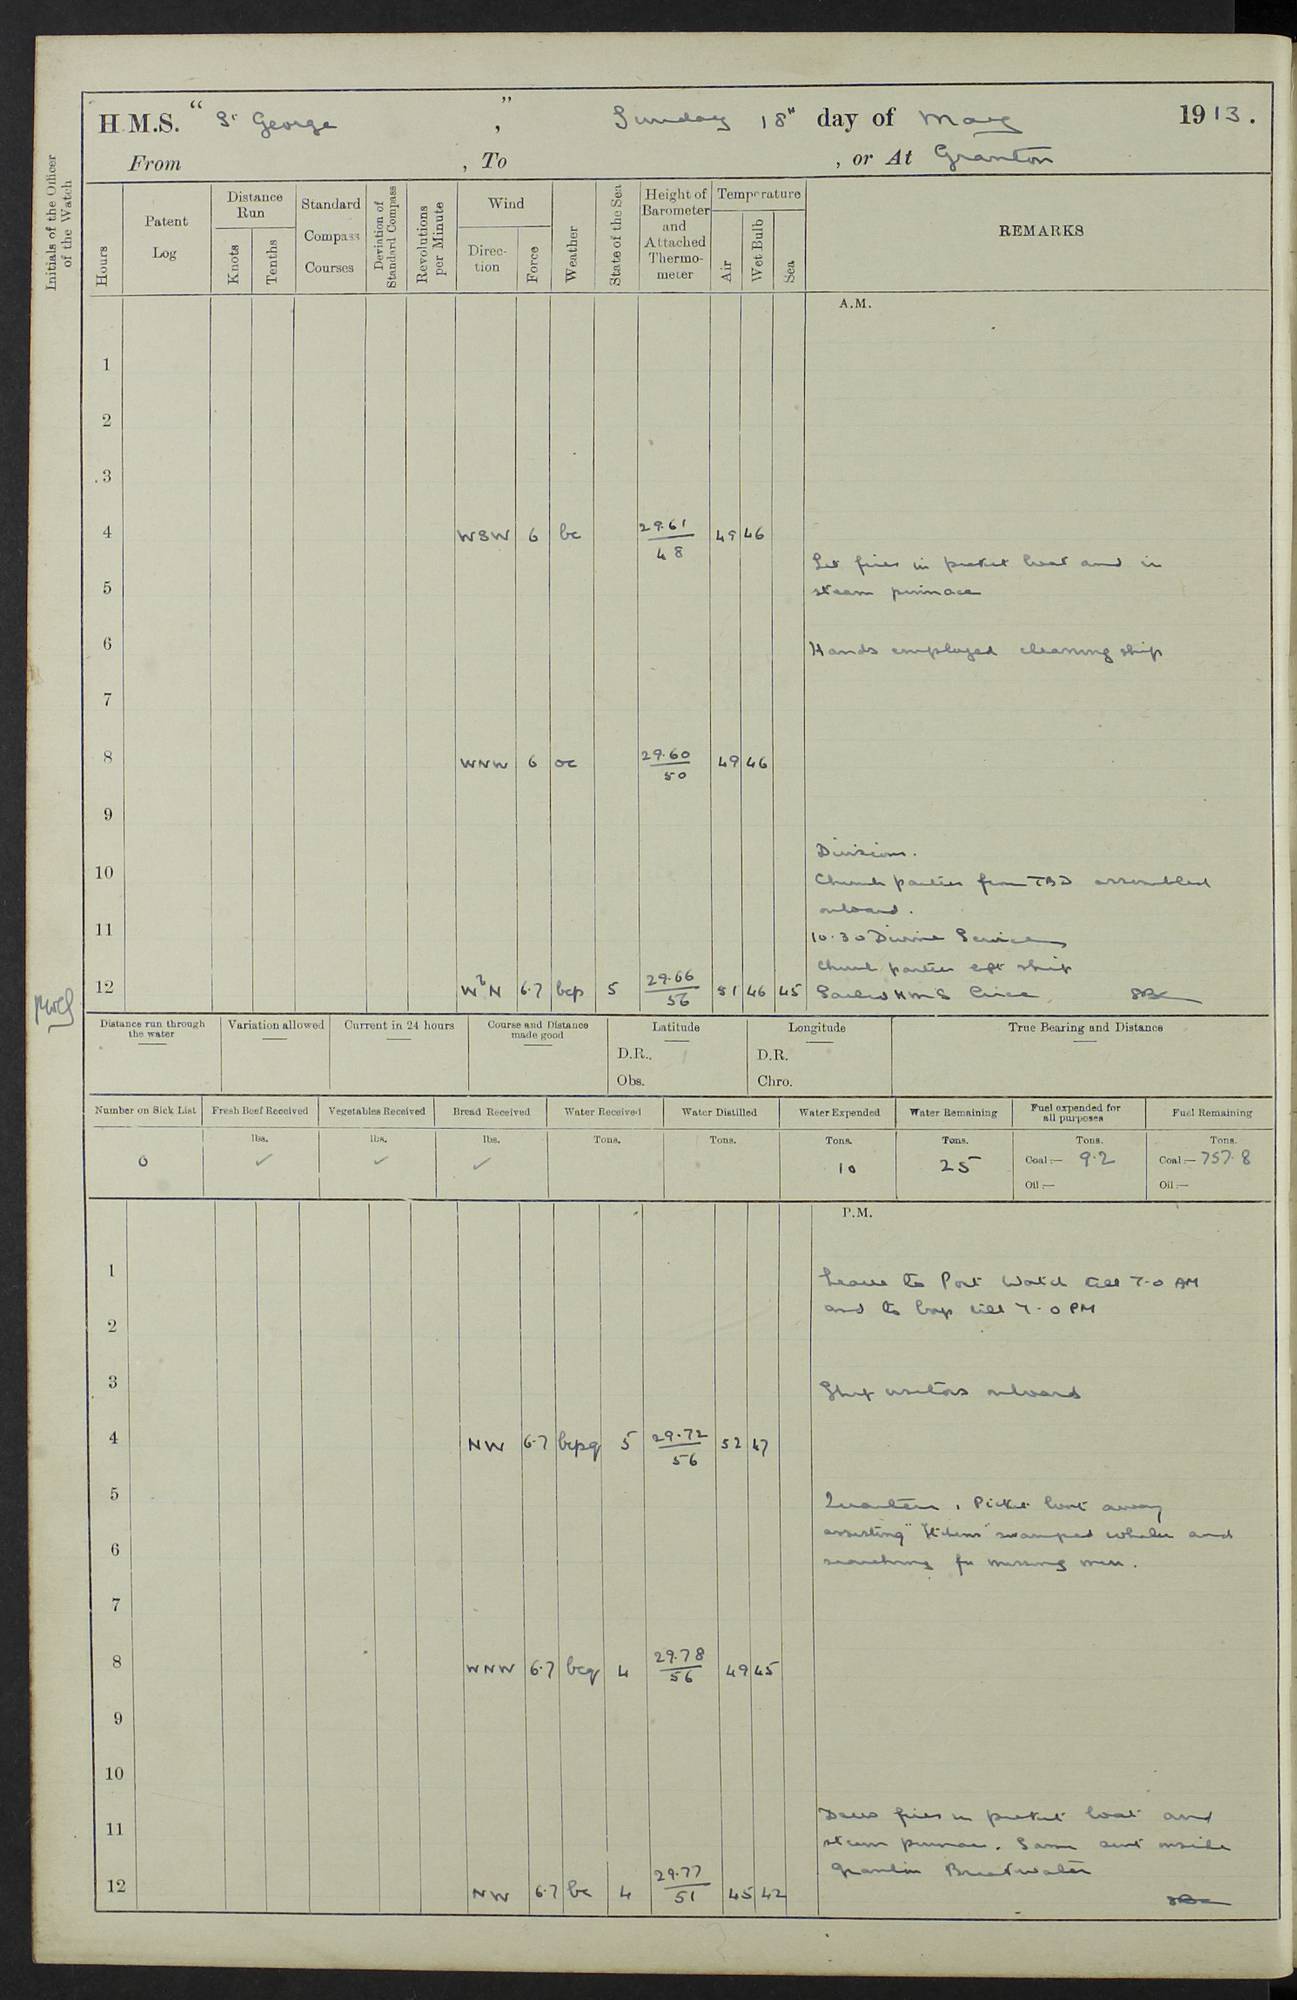 H.M.S. "St George", Sunday 18th day of May 1913.
From , To , or At Granton
Initials of the Officer of the Watch
Hours
Patent Log
Distance Run
Knots
Tenths
Standard Compass Courses
Deviation of Standard Compass
Revolutions per Minute
Wind
Direction
Force
Weather
State of the Sea
Height of Barometer and Attached Thermometer
Temperature
Air
Wet Bulb
Sea
REMARKS
A.M.
1
2
3
4 WSW 6 bc 29.61/48 49 46
Lit fires in picket boat and in
5 steam pinnace
6 Hands employed cleaning ship
7
8 WNW 6 oc 29.60/50 49 46
9
Divisions.
10 Church parties from TBD assembled
onboard.
11 10.30 Divine Service
Church parties left ship
12 WbN 6.7 bcp 5 29.66/56 51 46 45 Sailed HMS Circe
Distance run through the water
Variation allowed
Current in 24 hours
Course and Distance made good
Latitude
D.R.
Obs.
Longitude
D.R.
Chro.
True Bearing and Distance
Number on Sick List
0
Fresh Beef Received
lbs.
✓
Vegetables Received
lbs.
✓
Bread Received
lbs.
✓
Water Received
Tons.
Water Distilled
Tons.
Water Expended
Tons.
10
Water Remaining
Tons.
25
Fuel expended for all purposes
Tons.
Coal:— 9.2
Oil:—
Fuel Remaining
Tons.
Coal:— 757.8
Oil:—
P.M.
1 Leave to Port Watch till 7.0 AM
and to boys till 7.0 PM
2
3 Ship visitors onboard
4 NW 6.7 bcpq 5 29.72/56 52 47
5 Quarters. Picket boat away
assisting swamped whaler and
6 searching for missing men.
7
8 WNW 6.7 bcq 4 29.78/56 49 45
9
10
Drew fires in picket boat and
11 steam pinnace. Same sent inside
Granton Breakwater
12 NW 6.7 bc 4 29.77/51 45 42